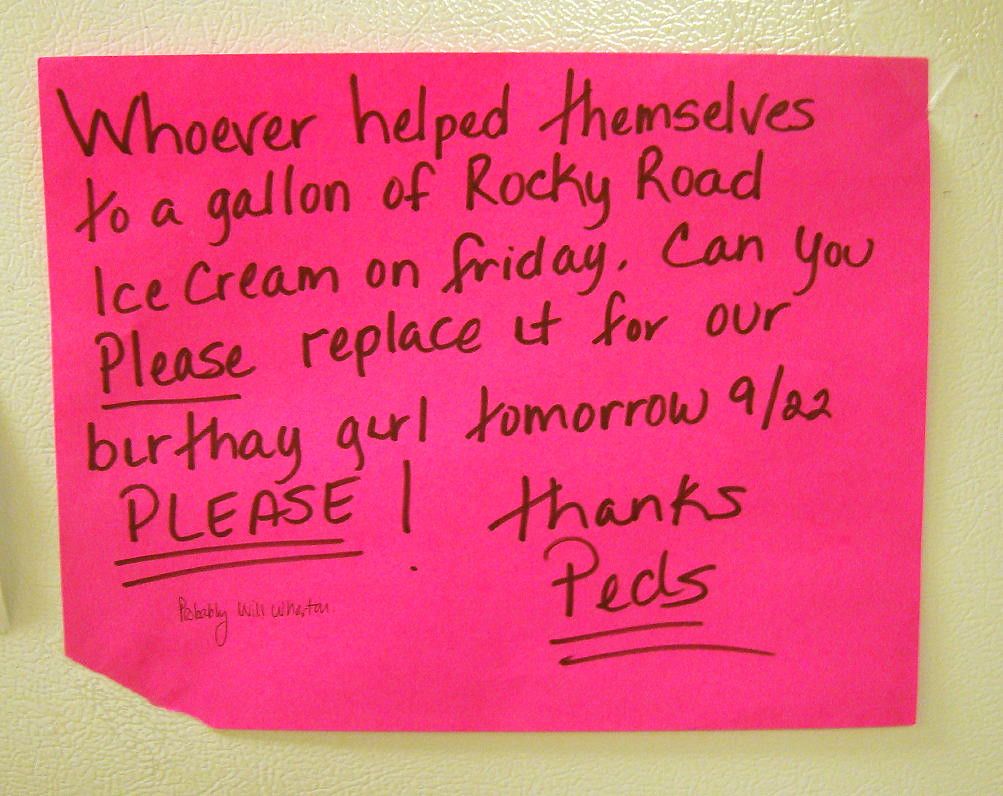 Whoever helped themselves
to a gallon of Rocky Road
Ice Cream on friday. Can you
Please replace it for our
birthay girl tomorrow 9/22
PLEASE !
thanks
Peds
Probably Will Wheaton.